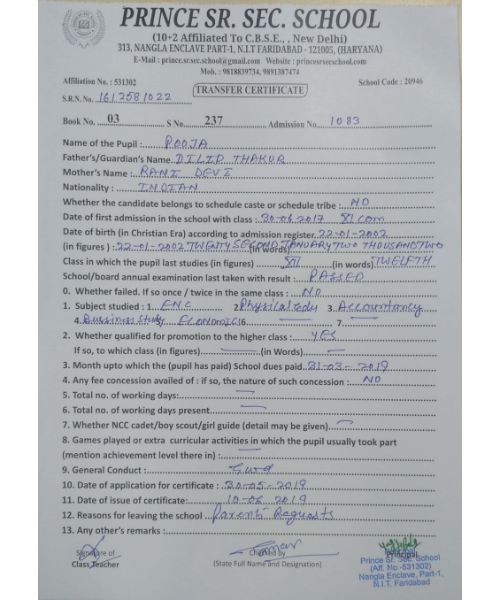 PRINCE SR. SEC. SCHOOL
(10+2 Affiliated To C.B.S.E., , New Delhi)
313, NANGLA ENCLAVE PART-1, N.I.T FARIDABAD - 121005, (HARYANA)
E-Mail : prince.sr.sec.school@gmail.com Website : princesrsecschool.com
Mob. : 9818839734, 9891387474
Affiliation No. : 531302 School Code : 20946
TRANSFER CERTIFICATE
S.R.N. No. 1612581022
Book No. 03 S No. 237 Admission No. 1083
Name of the Pupil : POOJA
Father's/Guardian's Name DILIP THAKUR
Mother's Name : RANI DEVI
Nationality : INDIAN
Whether the candidate belongs to schedule caste or schedule tribe : NO
Date of first admission in the school with class : 30-06-2017 XI Com
Date of birth (in Christian Era) according to admission register 22-01-2002
(in figures ) : 22-01-2002 (in words) TWENTY SECOND JANUARY TWO THOUSAND TWO
Class in which the pupil last studies (in figures) XII (in words) TWELFTH
School/board annual examination last taken with result : PASSED
0. Whether failed. If so once / twice in the same class : NO
1. Subject studied : 1. ENG 2 Physical edu 3. Accountancy
4. Bussiness study Economics 6. — 7. —
2. Whether qualified for promotion to the higher class : YES
If so, to which class (in figures) — (in Words) —
3. Month upto which the (pupil has paid) School dues paid 31-03-2019
4. Any fee concession availed of : if so, the nature of such concession : NO
5. Total no. of working days: —
6. Total no. of working days present —
7. Whether NCC cadet/boy scout/girl guide (detail may be given) —
8. Games played or extra curricular activities in which the pupil usually took part
(mention achievement level there in) : —
9. General Conduct : Good
10. Date of application for certificate : 30-05-2019
11. Date of issue of certificate: 10-06 2019
12. Reasons for leaving the school Parents Requests
13. Any other's remarks :
Signature of Class Teacher
Checked by
(State Full Name and Designation)
Principal
Prince Sr. Sec. School
(Aff. No -531302)
Nangla Enclave, Part-1,
N.I.T. Faridabad